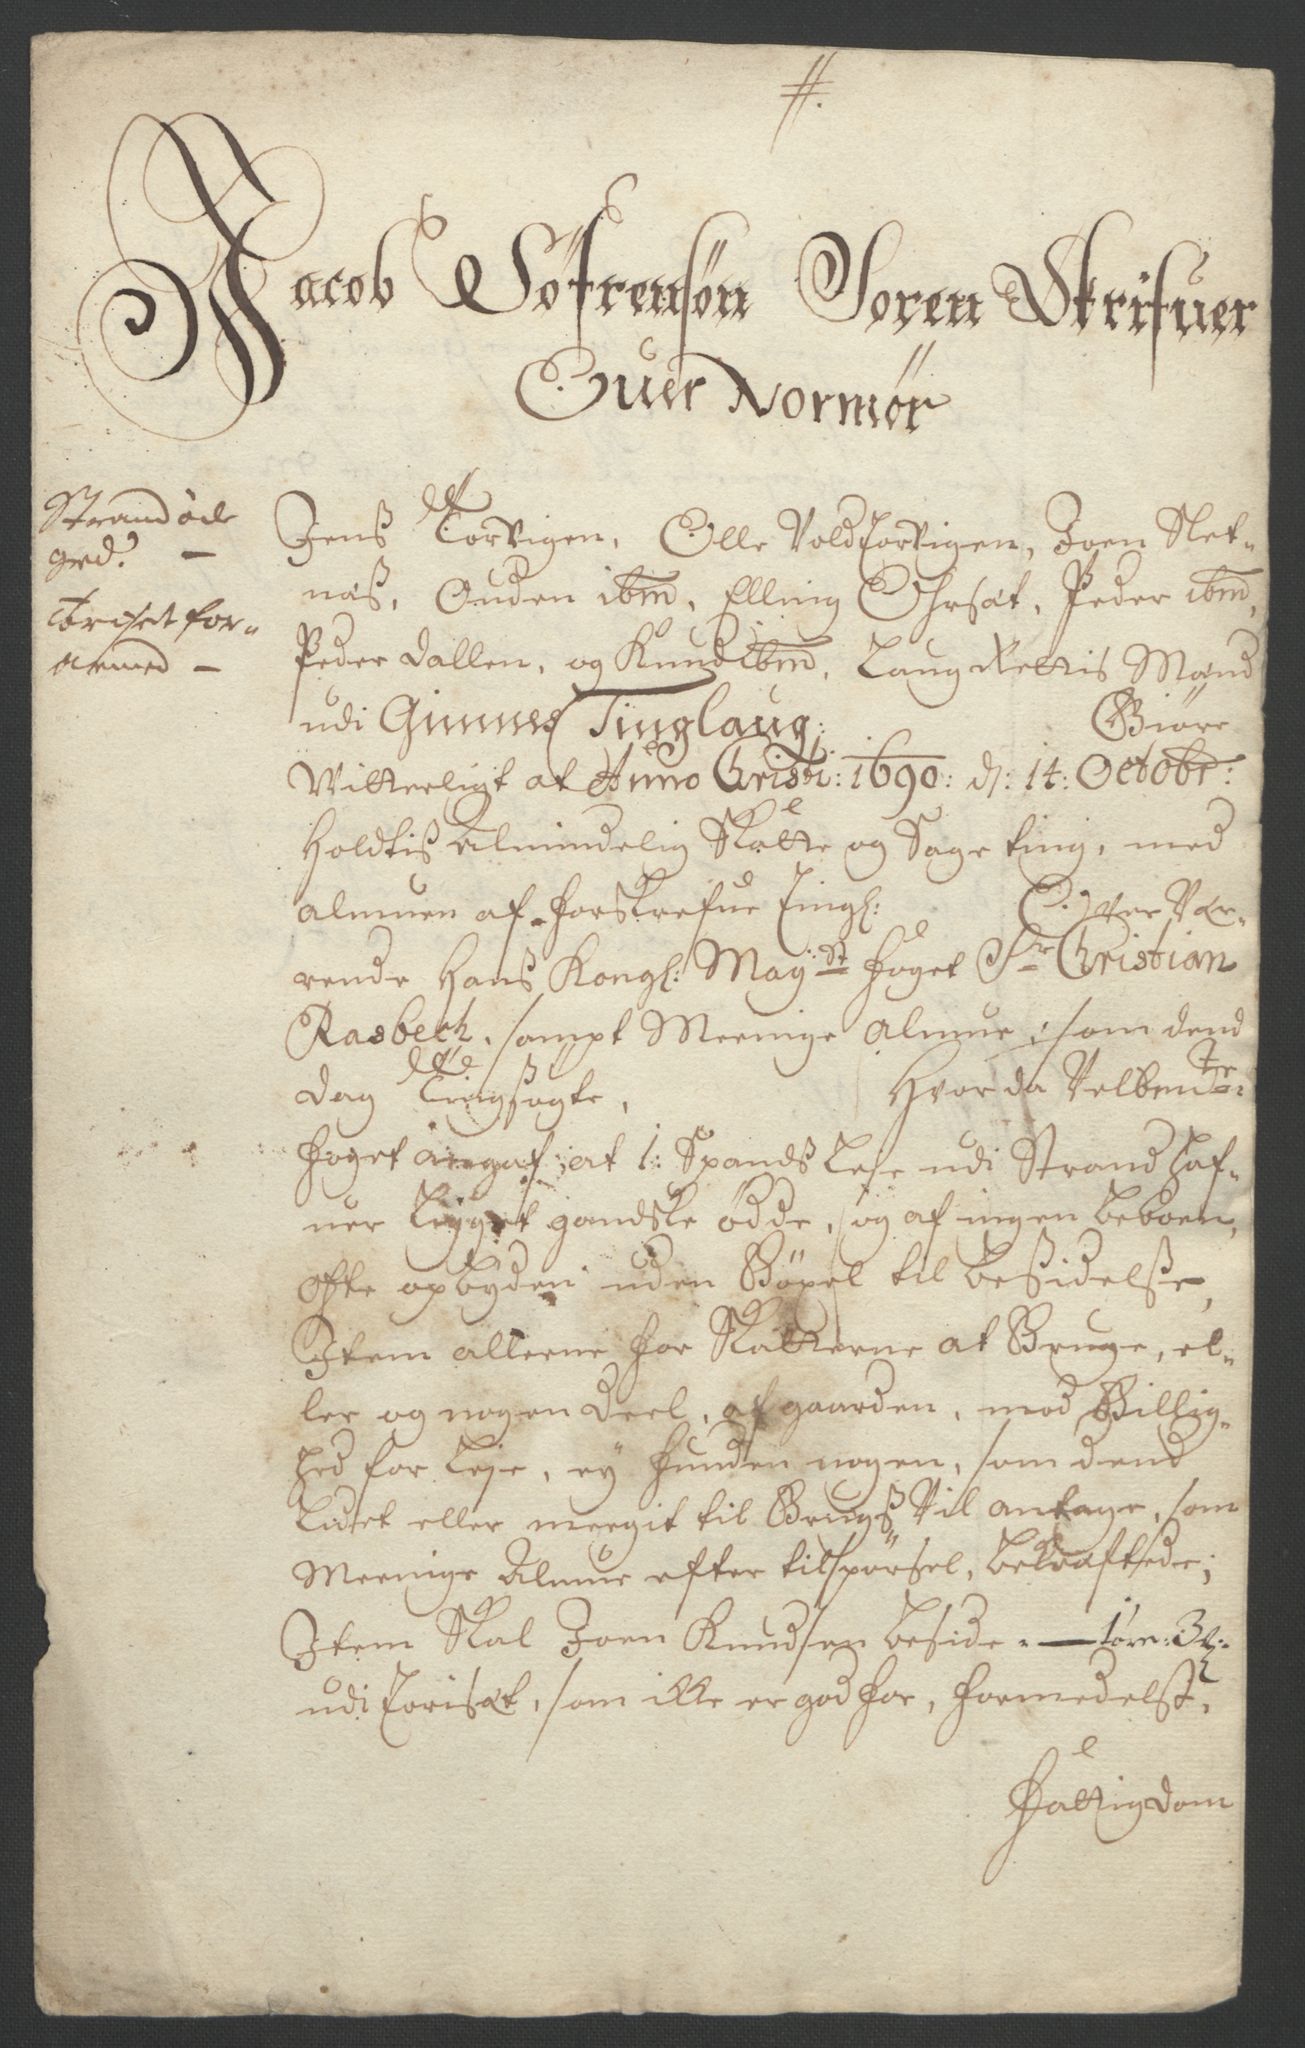 #.
Jacob Söfrensön Soren Skrifuer
Ouer Normör
Strand öde
grd. —
Toriset for-
armed —
Jens Torvigen, Olle Voldtorvigen, Joen Net-
næs, Ouden ibm, Elling Ohrsæt, Peder ibm,
Peder Dallen, og Knud ibm, Laug Rettis Mænd
udi Gimnes Tinglaug: Giöre
Vitterligt at Anno Christi: 1690: d: 14: Octobr:
Holdtis Almindelig Skatte og Sage ting, med
almuen af forskrefne Tingl: Over Vær-
rende Hans Kongl: Mayst foget Sr Christian
Rasbech, sampt Meenige Almue, som dend
Dag Tingsøgte, Hvor da Velbemte:
foget angaf, at 1: Spands Leje udi Strand haf-
uer Ligget gandske ödde, og af ingen beboen,
ofte opbyden uden Böxel til besidelse,
Item allerne for Skatterne at Bruge, el-
ler og nogen Deel, af gaarden, mod Billig-
hed for Leje, ey funden nogen, som dend
Lidet eller meegit til Brugs Vil antage, som
Meenige Almue efter tilspörsel, bekræftede;
Item Skal Joen Knudsen beside — 1 öre: 3
udi Torisæt, som ikke er god for, formedelst,
Fattigdom